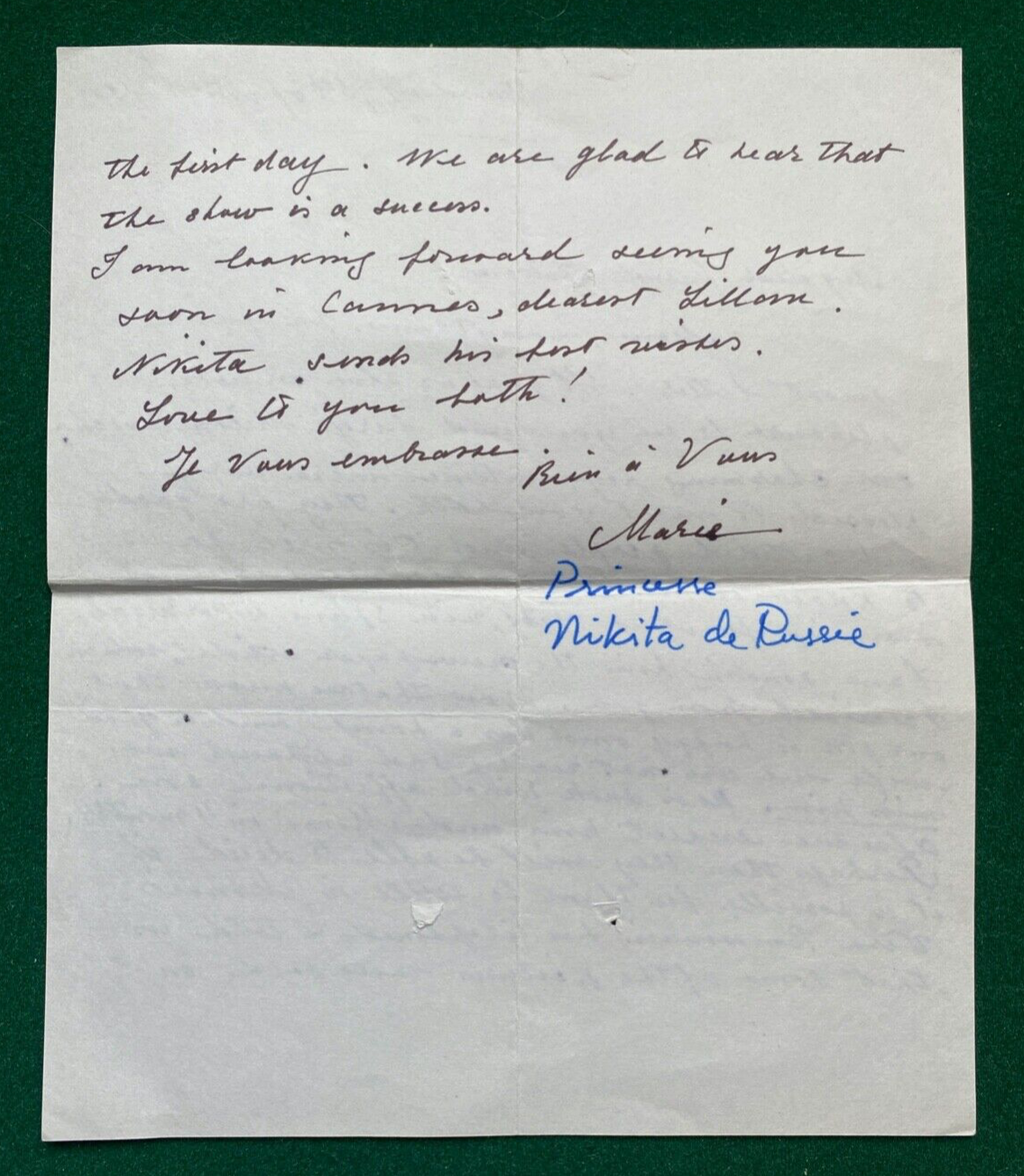 the first day. We are glad to hear that
the show is a success.
I am looking forward seeing you
soon in Cannes, dearest Lillom.
Nikita sends his best wishes.
Love to you both!
Je Vous embrasse.
Bien à Vous
Marie
Princesse
Nikita de Russie